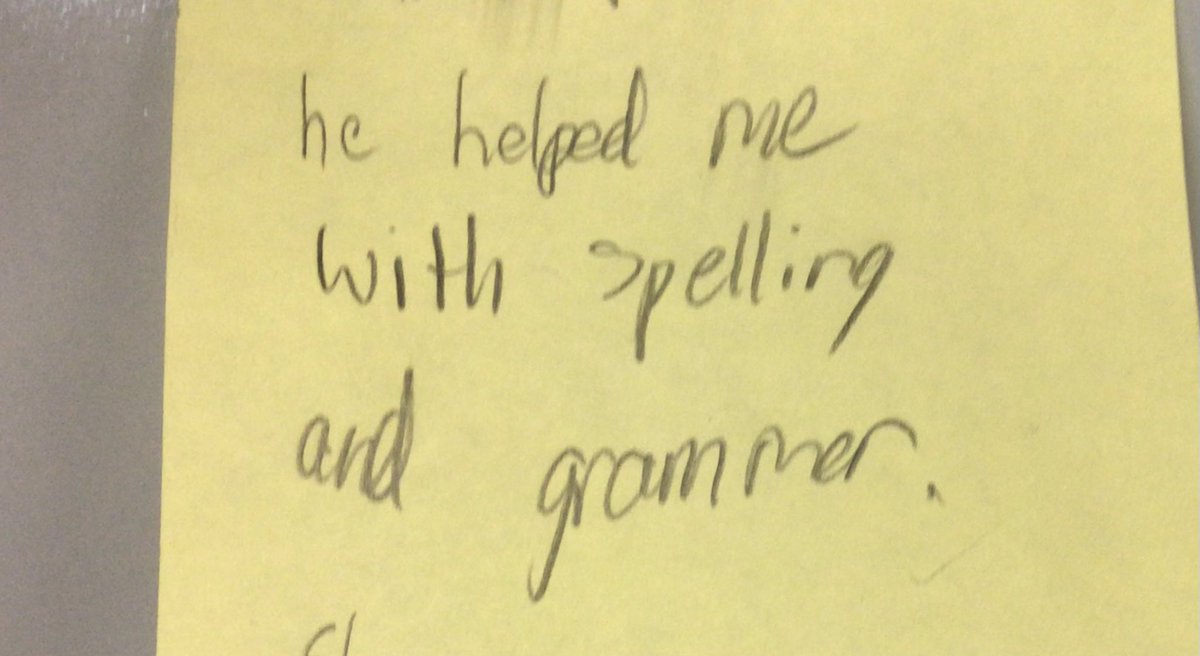 he helped me
with spelling
and grammer.